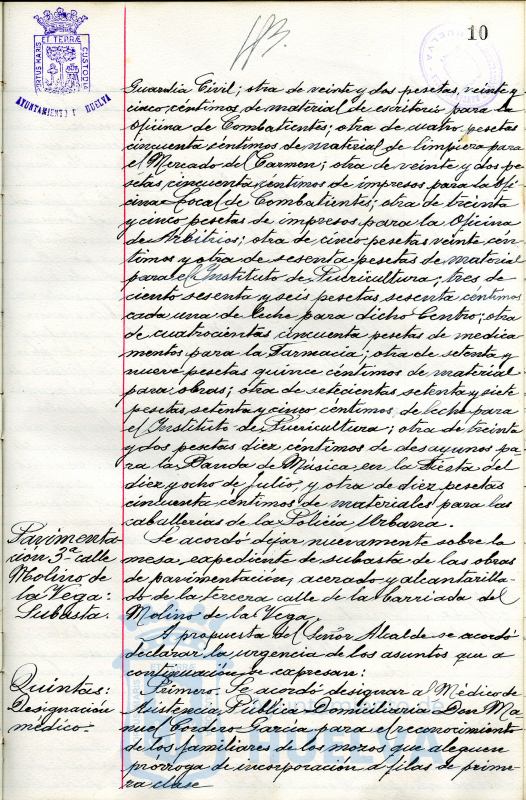 PORTUS MARIS ET TERRÆ CUSTODIA
AYUNTAMIENTO DE HUELVA
10
Guardia Civil; otra de veinte y dos pesetas, veinte y
cinco céntimos de material de escritorio para la
Oficina de Combatientes; otra de cuatro pesetas
cincuenta céntimos de material de limpieza para
el Mercado del Carmen; otra de veinte y dos pe
setas, cincuenta céntimos de impresos para la Ofi
cina Local de Combatientes; otra de treinta
y cinco pesetas de impresos para la Oficina
de Arbitrios; otra de cinco pesetas veinte cén
timos y otra de sesenta pesetas de material
para el Instituto de Puericultura; tres de
ciento sesenta y seis pesetas, sesenta céntimos
cada una de leche para dicho Centro; otra
de cuatrocientas cincuenta pesetas de medica
mentos para la Farmacia; otra de setenta y
nueve pesetas quince céntimos de material
para obras; otra de setecientas setenta y siete
pesetas setenta y cinco céntimos, de leche para
el Instituto de Puericultura; otra de treinta
y dos pesetas diez céntimos de desayunos pa
ra la Banda de Música en la Fiesta del
diez y ocho de julio, y otra de diez pesetas
cincuenta céntimos de materiales para las
caballerias de la Policia Urbana.
Pavimenta
ción 3ª calle
Molino de
la Vega:
Subasta.
Se acordó dejar nuevamente sobre la
mesa, expediente de subasta de las obras
de pavimentación, acerado y alcantarilla
do de la tercera calle de la barriada del
Molino de la Vega.
A propuesta del Señor Alcalde se acordó
declarar la urgencia de los asuntos que a
continuación se expresan:
Quintas:
Designación
médico.
Primero. Se acordó designar al Médico de
Asistencia Pública Domiciliaria Don Ma
nuel Cordero García para el reconocimiento
de los familiares de los mozos que aleguen
prórroga de incorporación a filas de prime
ra clase
Ayuntamiento de
HUELVA